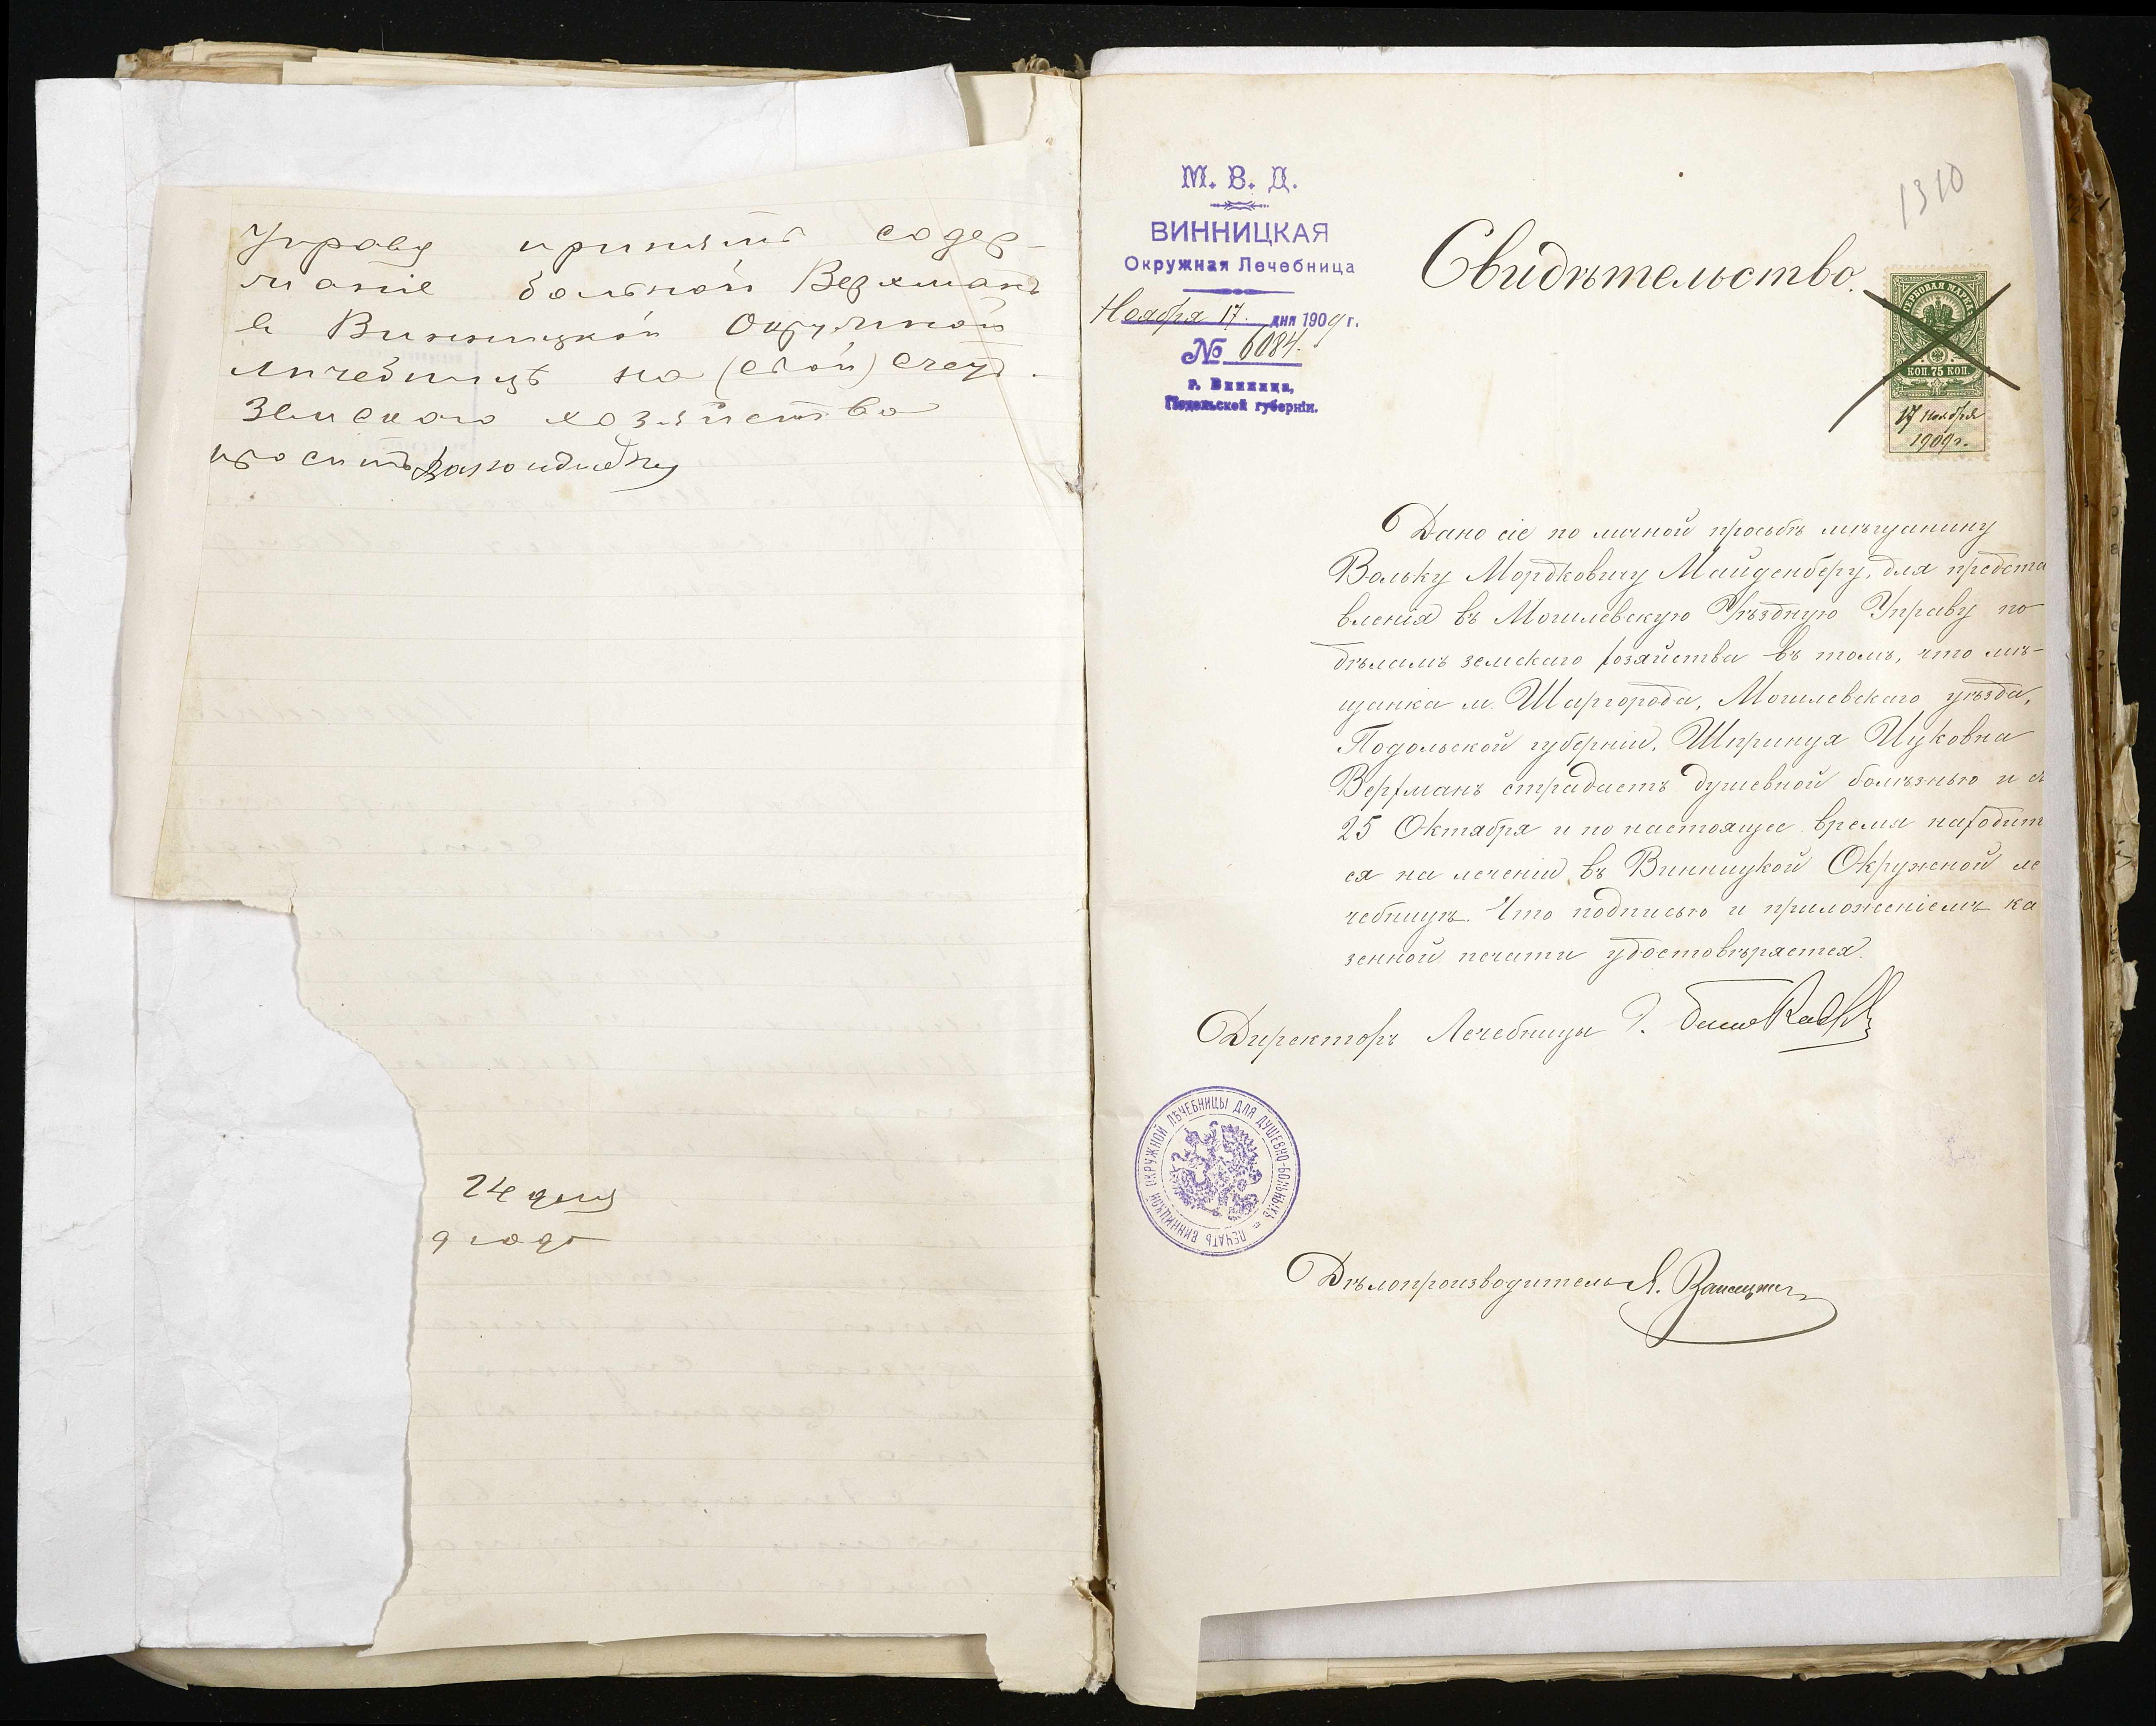 Управу принять содер-
жаніе больной Верхманъ
в Винницкой Окружной
личебницѣ на (свой) счетъ
Земскаго хозяйства
просить
24 дня
9 года
М. В. Д.
ВИННИЦКАЯ
Окружная Лечебница
Ноября 17 дня 1909 г.
№ 6084.
г. Винница,
Подольской губерніи.
1310
Свидѣтельство.
ГЕРБОВАЯ МАРКА
КОП. 75 КОП.
17 ноября
1909 г.
Дано сіе по личной просьбѣ мѣщанину
Вольку Мордковичу Майденбергу, для предста
вленія въ Могилевскую Уѣздную Управу по
дѣламъ земскаго хозяйства въ томъ, что мѣ-
щанка м. Шаргорода, Могилевскаго уѣзда,
Подольской губерніи, Шпринця Ицковна
Верхманъ страдаетъ душевной болѣзнью и съ
25 Октября и по настоящее время находит
ся на леченіи въ Винницкой Окружной ле
чебницѣ. Что подписью и приложеніемъ ка
зенной печати удостовѣряется.
Директоръ Лечебницы
ПЕЧАТЬ ВИННИЦКОЙ ОКРУЖНОЙ ЛѢЧЕБНИЦЫ ДЛЯ ДУШЕВНО-БОЛЬНЫХЪ
Дѣлопроизводитель